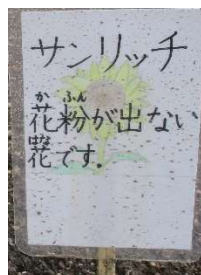 サンリッチ
か ふん
花粉が出ない
花です。